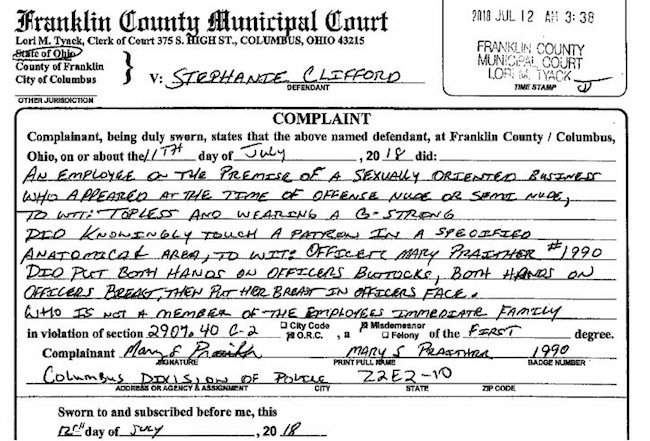 Franklin County Municipal Court
Lori M. Tyack, Clerk of Court 375 S. HIGH ST., COLUMBUS, OHIO 43215
State of Ohio
County of Franklin
City of Columbus
} V: STEPHANIE CLIFFORD
DEFENDANT
OTHER JURISDICTION
2018 JUL 12 AM 3:38
FRANKLIN COUNTY
MUNICIPAL COURT
LORI M. TYACK
TIME STAMP
COMPLAINT
Complainant, being duly sworn, states that the above named defendant, at Franklin County / Columbus,
Ohio, on or about the 11TH day of July, 2018 did:
AN EMPLOYEE ON THE PREMISE OF A SEXUALLY ORIENTED BUSINESS
WHO APPEARED AT THE TIME OF OFFENSE NUDE OR SEMI NUDE,
TO WIT: TOPLESS AND WEARING A G-STRONG
DID KNOWINGLY TOUCH A PATRON IN A SPECIFIED
ANATOMICAL AREA, TO WIT: OFFICER MARY PRAITHER #1990
DID PUT BOTH HANDS ON OFFICERS BUTTOCKS, BOTH HANDS ON
OFFICERS BREAST, THEN PUT HER BREAST IN OFFICERS FACE.
WHO IS NOT A MEMBER OF THE EMPLOYEES IMMEDIATE FAMILY
in violation of section 2907.40 C-2 City Code O.R.C. , a Misdemeanor Felony of the FIRST degree.
Complainant Mary S Praither MARY S PRAITHER 1990
SIGNATURE PRINT FULL NAME BADGE NUMBER
COLUMBUS DIVISION OF POLICE Z2E2-10
ADDRESS OR AGENCY & ASSIGNMENT CITY STATE ZIP CODE
Sworn to and subscribed before me, this
12TH day of JULY, 2018